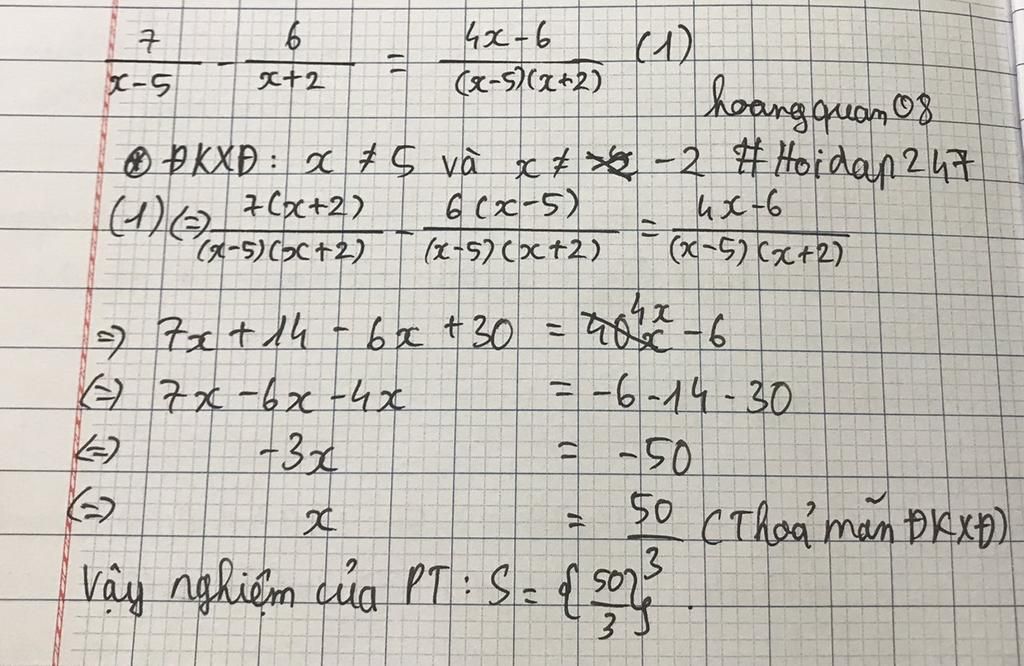 7/(x-5) - 6/(x+2) = (4x-6)/((x-5)(x+2)) (1)
hoangquan08
⊛ ĐKXĐ: x ≠ 5 và x ≠ -2 #Hoidap247
(1) (=) 7(x+2)/((x-5)(x+2)) - 6(x-5)/((x-5)(x+2)) = (4x-6)/((x-5)(x+2))
=) 7x + 14 - 6x + 30 = 4x - 6
(=) 7x - 6x - 4x = -6 - 14 - 30
(=) -3x = -50
(=) x = 50/3 (Thoả mãn ĐKXĐ)
Vậy nghiệm của PT: S = {50/3}.